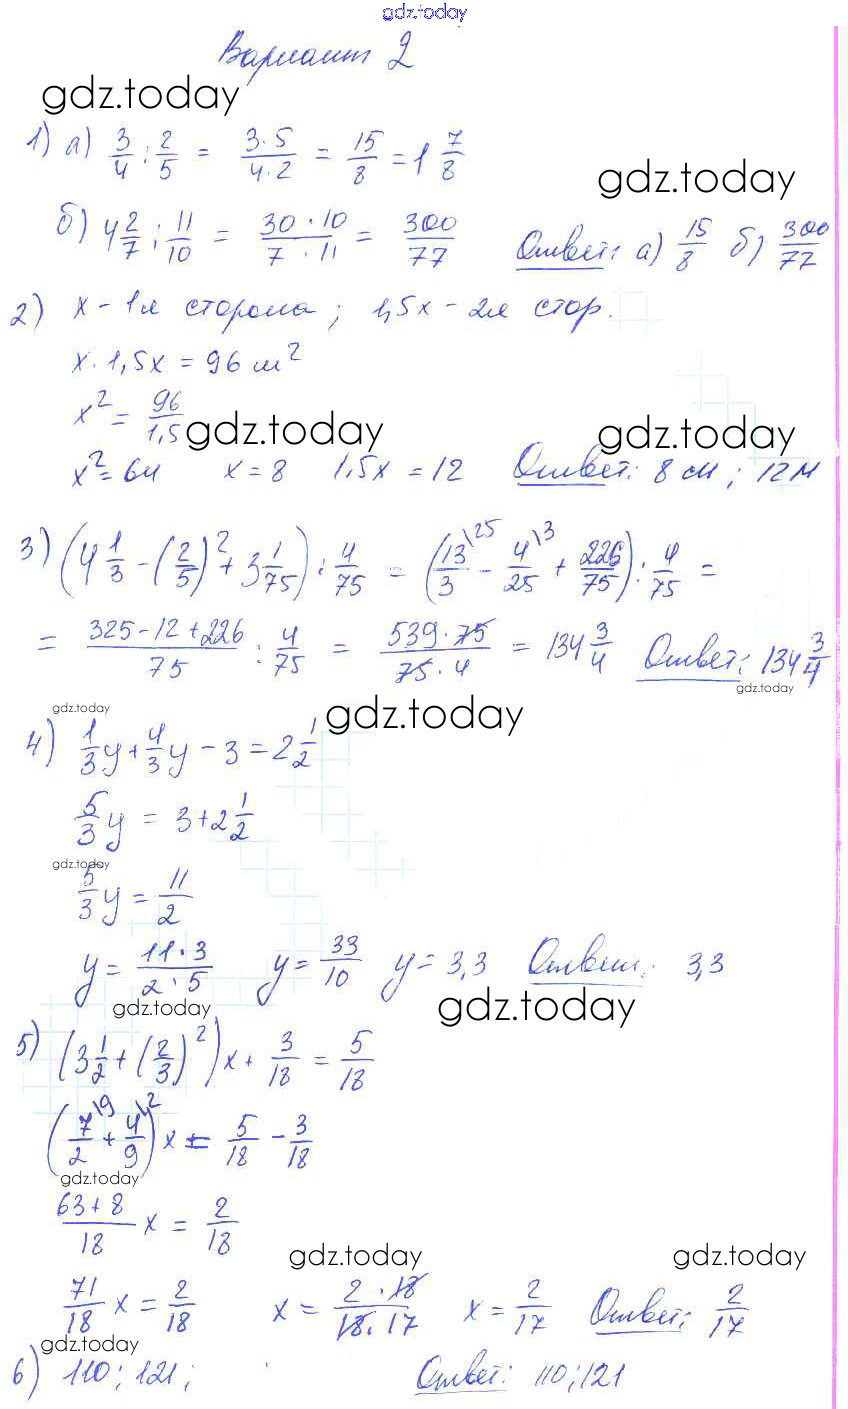 gdz.today
Вариант 2
gdz.today
1) а) 3/4 : 2/5 = 3·5/4·2 = 15/8 = 1 7/8
gdz.today
б) 4 2/7 : 11/10 = 30·10/7·11 = 300/77 Ответ: а) 15/8 б) 300/77
2) x - 1я сторона; 1,5x - 2я стор.
x·1,5x = 96 м²
x² = 96/1,5
gdz.today gdz.today
x² = 64 x = 8 1,5x = 12 Ответ: 8 см; 12 м
3) (4 1/3 - (2/5)² + 3 1/75) : 4/75 = (13/3 \25 - 4/25 \3 + 226/75) : 4/75 =
= 325-12+226/75 : 4/75 = 539·75/75·4 = 134 3/4 Ответ: 134 3/4
gdz.today
gdz.today gdz.today
4) 1/3y + 4/3y - 3 = 2 1/2
5/3y = 3 + 2 1/2
gdz.today
5/3y = 11/2
y = 11·3/2·5 y = 33/10 y = 3,3 Ответ: 3,3
gdz.today gdz.today
5) (3 1/2 + (2/3)²)x + 3/18 = 5/18
(7/2 \9 + 4/9 \2)x = 5/18 - 3/18
gdz.today
63+8/18 x = 2/18
gdz.today gdz.today
71/18 x = 2/18 x = 2·18/18·17 x = 2/17 Ответ: 2/17
gdz.today
6) 110; 121; Ответ: 110; 121